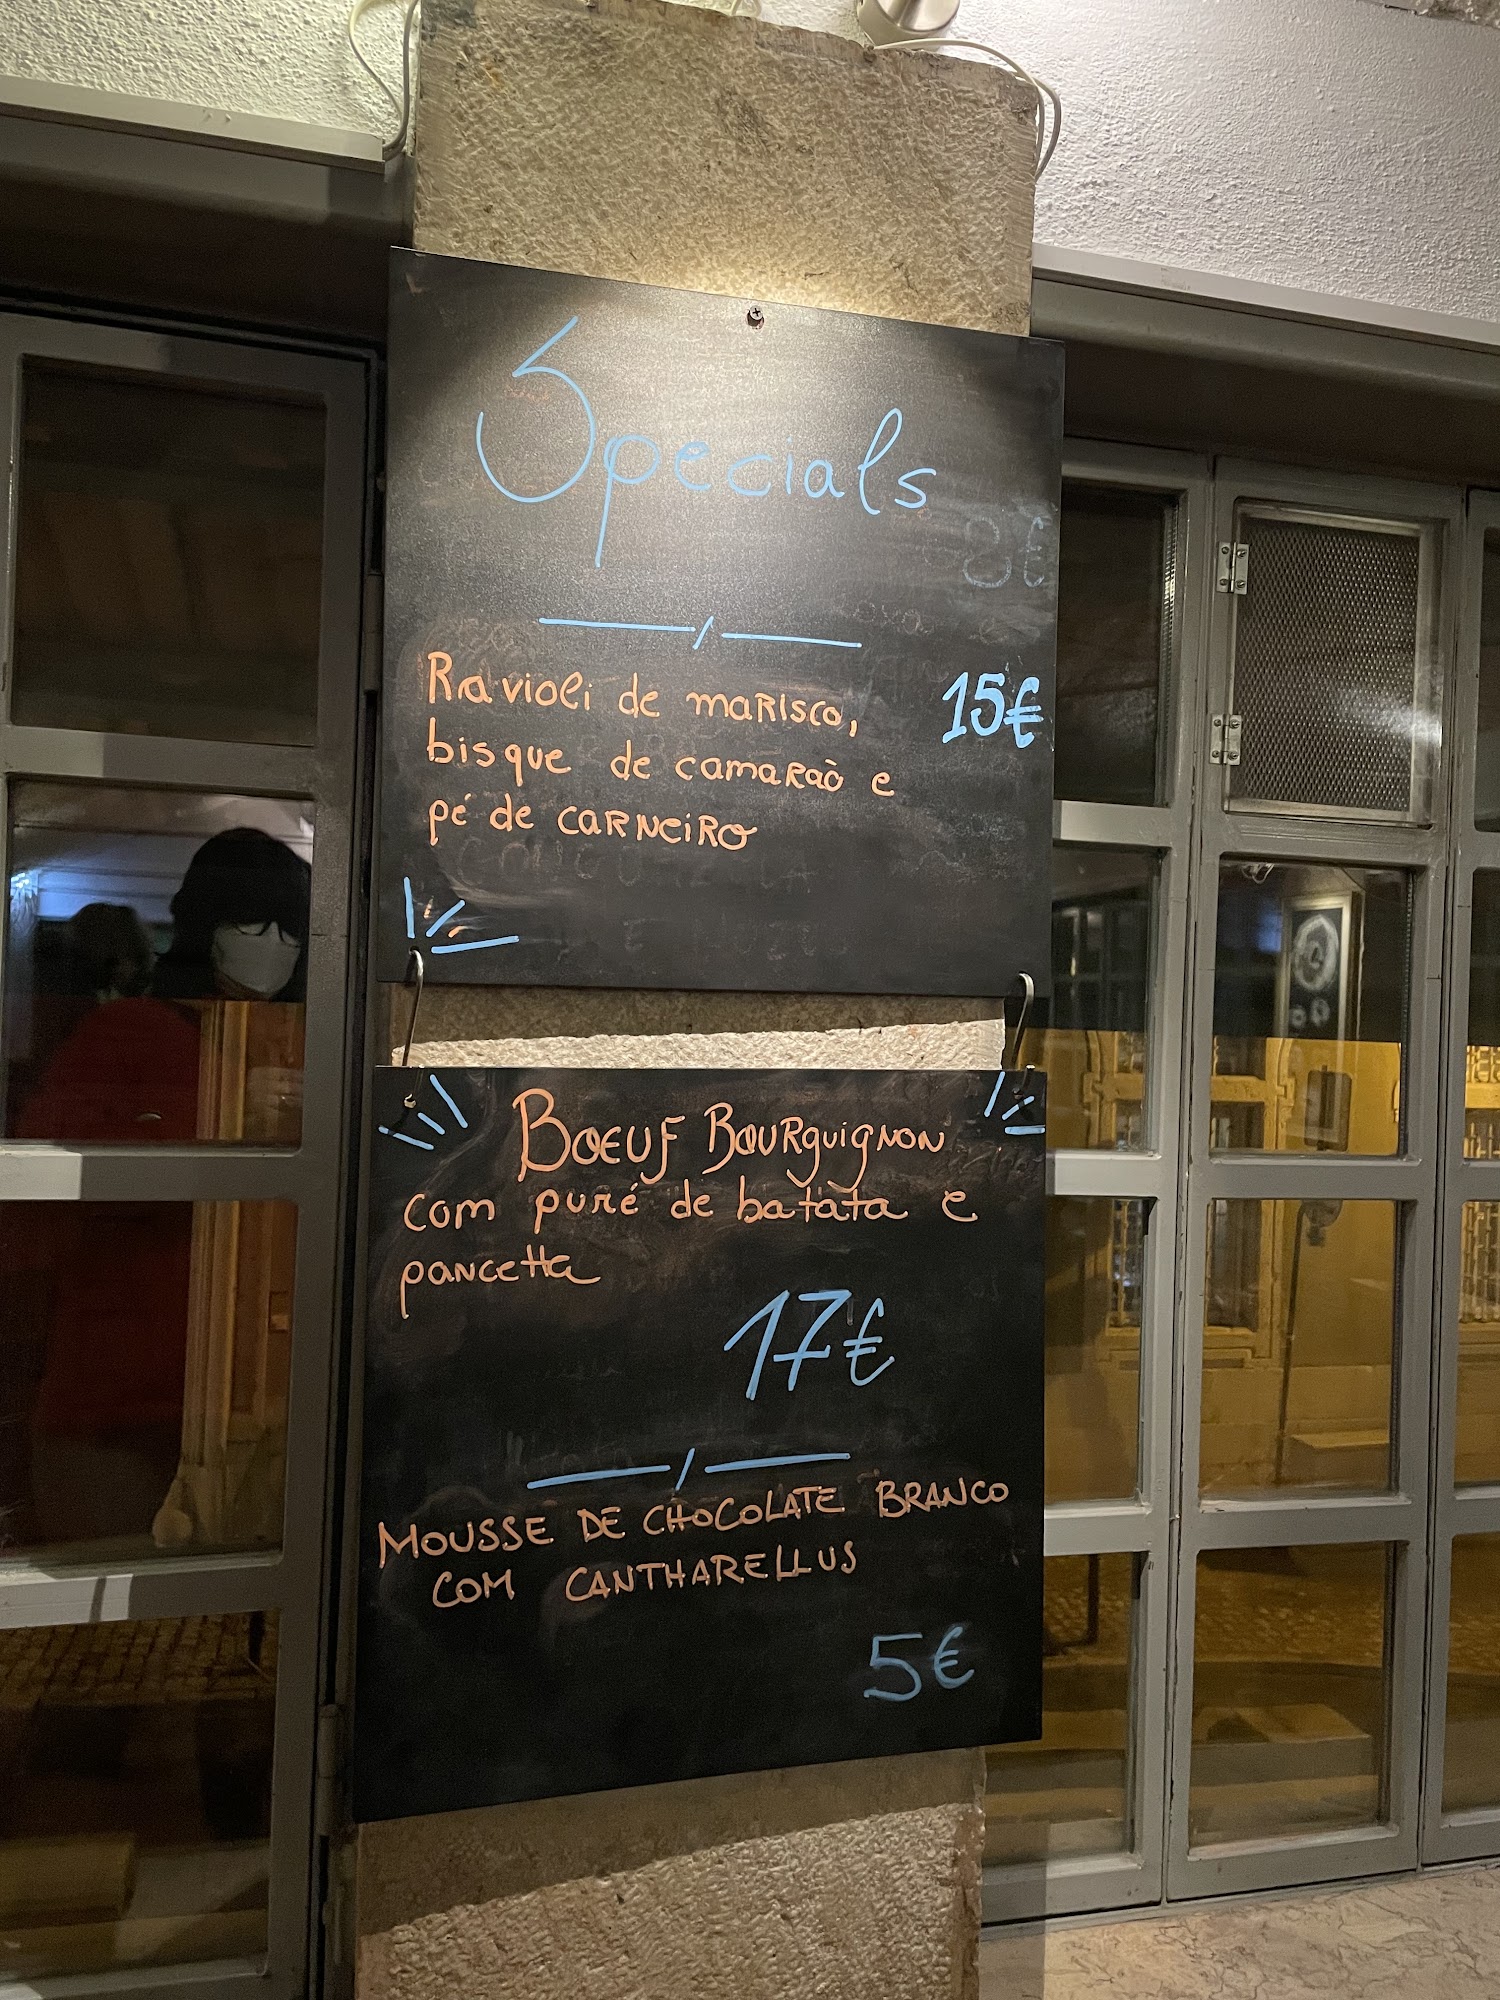 Specials
Ravioli de marisco,
15€
bisque de camaraò e
pé de carneiro
Boeuf Bourguignon
com puré de batata e
pancetta
17€
MOUSSE DE CHOCOLATE BRANCO
COM CANTHARELLUS
5€